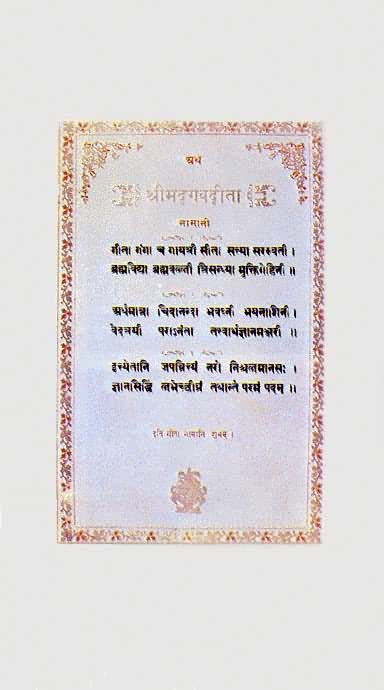 अथ
श्रीमद्गवद्गीता
नामानी
गीता गंगा च गायत्री सीता सत्या सरस्वती ।
ब्रह्मविद्या ब्रह्मवल्ली त्रिसन्ध्या मुक्तिगेहिनी ॥
अर्धमात्रा चिदानन्दा भवघ्नी भयनाशिनी ।
वेदत्रयी पराऽनंता तत्त्वार्थज्ञानमञ्जरी ॥
इत्येतानि जपन्नित्यं नरो निश्चलमानसः ।
ज्ञानसिद्धिं लभेच्छीघ्रं तथान्ते परमं पदम् ॥
इति गीता नामानि शुभम् ।